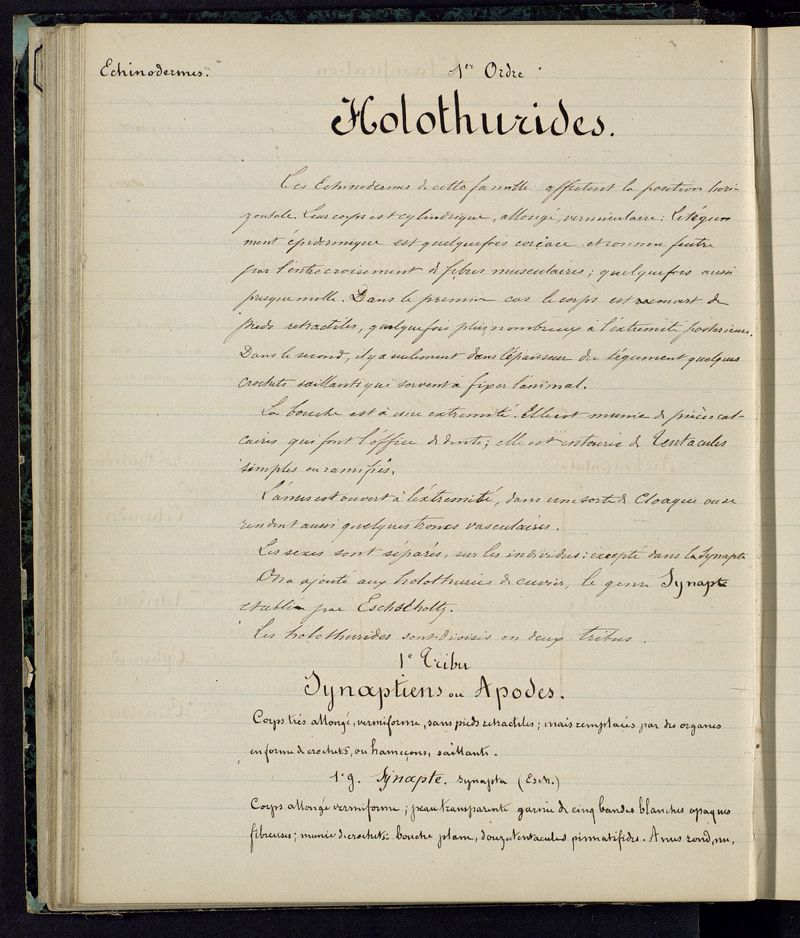 Echinodermes.
1er Ordre
Holothurides.
Les Echinodermes de cette famille affectent la position hori-
zontale. Leur corps est cylindrique, allongé, vermiculaire: le tégu-
ment épidermique est quelquefois coriace et comme feutré
par l'entrecroisement de fibres musculaires; quelquefois aussi
presque molle. Dans le premier cas le corps est recouvert de
pieds retractiles, quelquefois plus nombreux à l'extremité posterieure.
Dans le second, il y a seulement dans l'épaisseur du tégument quelques
crochets saillants qui servent à fixer l'animal.
La bouche est à une extremité. Elle est munie de pièces cal-
caires qui font l'office de dents; elle est entourée de Tentacules
simples ou ramifiés.
L'anus est ouvert à l'éxtremité, dans une sorte de Cloaque ou se
rendent aussi quelques troncs vasculaires.
Les sexes sont séparés, sur les individus: excepté dans la Synapte
On a ajouté aux holothuries de cuvier, le genre Synapte
etabli par Escholholtz.
Les holothurides sont divisés en deux tribus.
1e Tribu
Synaptiens ou Apodes.
Corps très allongé, vermiforme, sans pieds retractiles; mais remplacés par des organes
en forme de crochets, ou hameçons, saillants.
1r g. Synapte. Synapta (Esch.)
Corps allongé vermiforme; peau transparente garnie de cinq bandes blanches opaques
fibreuses; munie de crochets: bouche plane, douze tentacules pinnatifides. Anus rond, nu,